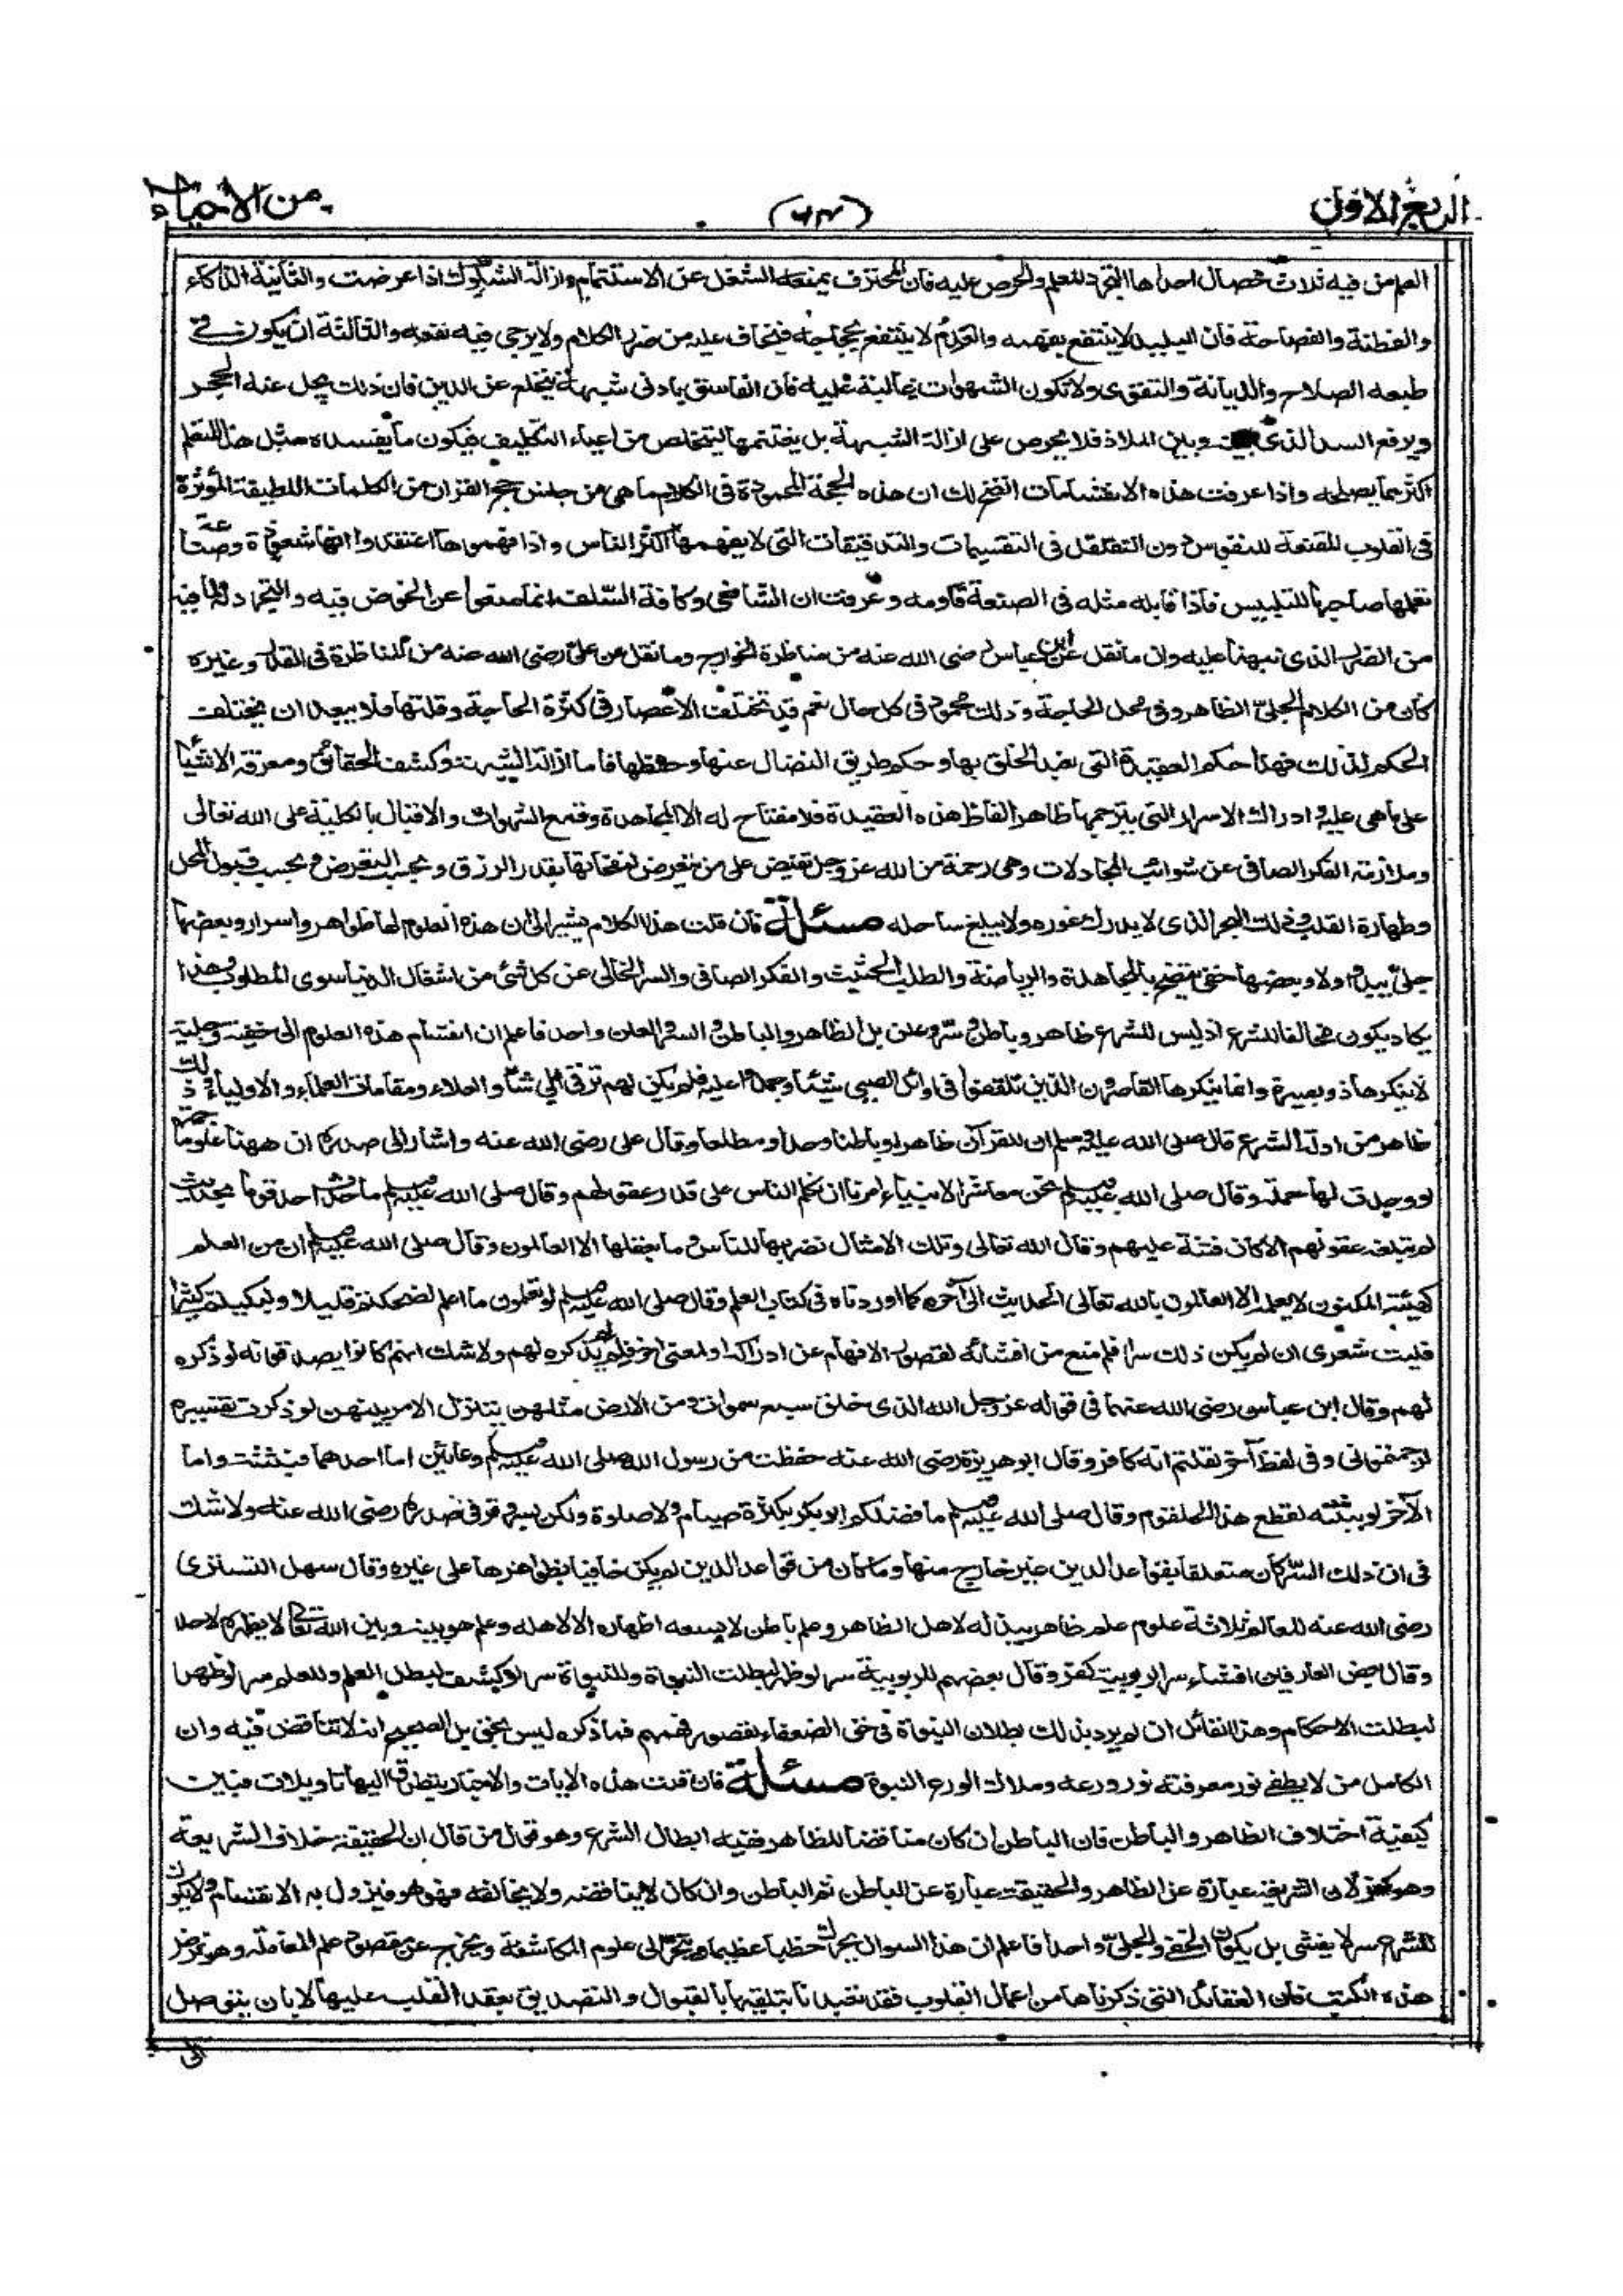 الربع الاول
(٦٣)
من الاحياء
العلم من فيه ثلاث خصال احداها التجرد للعلم والحرص عليه فان المحترف يمنعه الشغل عن الاستتمام وازالة الشكوك اذا عرضت والثانية الذكاء
والفطنة والفصاحة فان البليد لا ينتفع بفهمه والفدم لا ينتفع بحجاجه فيخاف عليه من ضرر الكلام ولا يرجى فيه نفعه والثالثة ان يكون في
طبعه الصلاح والديانة والتقوى ولا تكون الشهوات غالبة عليه فان الفاسق بادنى شبهة ينخلع عن الدين فان ذلك يحل عنه الحجر
ويرفع السد الذى بينه وبين الملاذ فلا يحرص على ازالة الشبهة بل يغتنمها ليتخلص من اعباء التكليف فيكون ما يفسده مثل هذا المتعلم
اكثر مما يصلحه واذا عرفت هذه الانقسامات اتضح لك ان هذه الحجة المحمودة فى الكلام انما هى من جنس حجج القرآن من الكلمات اللطيفة المؤثرة
فى القلوب المقنعة للنفوس دون التغلغل فى التقسيمات والتدقيقات التى لا يفهمها اكثر الناس واذا فهموها اعتقدوا انها شعوذة وصناعة
تعلمها صاحبها للتلبيس فاذا قابله مثله فى الصنعة قاومه وعرفت ان الشافعى وكافة السلف انما منعوا عن الخوض فيه والتجرد له لما فيه
من الضرر الذى نبهنا عليه وان ما نقل عن ابن عباس رضى الله عنه من مناظرة الخوارج وما نقل عن على رضى الله عنه من المناظرة فى القدر وغيره
كان من الكلام الجلى الظاهر وفى محل الحاجة وذلك محمود فى كل حال نعم قد تختلف الاعصار فى كثرة الحاجة وقلتها فلا يبعد ان يختلف
الحكم لذلك فهذا حكم العقيدة التى تعبد الخلق بها وحكم طريق النضال عنها وحفظها فاما ازالة الشبهة وكشف الحقائق ومعرفة الاشيا
على ما هى عليه وادراك الاسرار التى يترجمها ظاهر الفاظ هذه العقيدة فلا مفتاح له الا المجاهدة وقمع الشهوات والاقبال بالكلية على الله تعالى
وملازمة الفكر الصافى عن شوائب المجادلات وهى رحمة من الله عز وجل تفيض على من يتعرض لنفحاتها بقدر الرزق وبحسب التعرض وبحسب قبول المحل
وطهارة القلب وذلك البحر الذى لا يدرك غوره ولا يبلغ ساحله مسئلة فان قلت هذا الكلام يشير الى ان هذه العلوم لها ظواهر واسرار وبعضها
جلى يبدو اولا وبعضها خفى يتضح بالمجاهدة والرياضة والطلب الحثيث والفكر الصافى والسر الخالى عن كل شئ من اشغال الدنيا سوى المطلوب وهذا
يكاد يكون مخالفا للشرع اذ ليس للشرع ظاهر وباطن وسر وعلن بل الظاهر والباطن والسر والعلن واحد فاعلم ان انقسام هذه العلوم الى خفية وجلية
لا ينكرها ذو بصيرة وانما ينكرها القاصرون الذين تلقفوا فى اوائل الصبى شيئا وجمدوا عليه فلم يكن لهم ترقى الى شأو العلاء ومقامات العلماء والاولياء وذلك
ظاهر من ادلة الشرع قال صلى الله عليه وسلم ان للقرآن ظاهرا وباطنا وحدا ومطلعا وقال على رضى الله عنه واشار الى صدره ان ههنا علوما جمة
لو وجدت لها حملة وقال صلى الله عليه وسلم نحن معاشر الانبياء امرنا ان نكلم الناس على قدر عقولهم وقال صلى الله عليه وسلم ما حدث احد قوما بحديث
لم تبلغه عقولهم الا كان فتنة عليهم وقال الله تعالى وتلك الامثال نضربها للناس وما يعقلها الا العالمون وقال صلى الله عليه وسلم ان من العلم
كهيئة المكنون لا يعلمه الا العالمون بالله تعالى الحديث الى آخره كما اوردناه فى كتاب العلم وقال صلى الله عليه وسلم لو تعلمون ما اعلم لضحكتم قليلا ولبكيتم كثيرا
فليت شعرى ان لم يكن ذلك سرا فلم منع من افشائه لقصور الافهام عن ادراكه او لمعنى آخر فلم لم يذكره لهم ولا شك انهم كانوا يصدقونه لو ذكره
لهم وقال ابن عباس رضى الله عنهما فى قوله عز وجل الله الذى خلق سبع سموات ومن الارض مثلهن يتنزل الامر بينهن لو ذكرت تفسيره
لرجمتمونى وفى لفظ آخر لقلتم انه كافر وقال ابو هريرة رضى الله عنه حفظت من رسول الله صلى الله عليه وسلم وعائين اما احدهما فبثثته واما
الآخر لو بثثته لقطع هذا الحلقوم وقال صلى الله عليه وسلم ما فضلكم ابو بكر بكثرة صيام ولا صلوة ولكن بسر وقر فى صدره رضى الله عنه ولا شك
فى ان ذلك السر كان متعلقا بقواعد الدين غير خارج منها وما كان من قواعد الدين لم يكن خافيا بظواهرها على غيره وقال سهل التسترى
رضى الله عنه للعالم ثلاثة علوم علم ظاهر يبذله لاهل الظاهر وعلم باطن لا يسعه اظهاره الا لاهله وعلم هو بينه وبين الله تعالى لا يظهره لاحد
وقال بعض العارفين افشاء سر الربوبية كفر وقال بعضهم للربوبية سر لو ظهر لبطلت النبوة وللنبوة سر لو كشف لبطل العلم وللعلم سر لو ظهر
لبطلت الاحكام وهذا القائل ان لم يرد بذلك بطلان النبوة فى حق الضعفاء لقصور فهمهم فما ذكره ليس بحق بل الصحيح انه لا تناقض فيه وان
الكامل من لا يطفئ نور معرفته نور ورعه وملاك الورع النبوة مسئلة فان قلت هذه الايات والاخبار يتطرق اليها تاويلات فبين
كيفية اختلاف الظاهر والباطن فان الباطن ان كان مناقضا للظاهر ففيه ابطال الشرع وهو قول من قال ان الحقيقة خلاف الشريعة
وهو كفر لان الشريعة عبارة عن الظاهر والحقيقة عبارة عن الباطن وان كان لا يناقضه ولا يخالفه فهو هو فيزول به الانقسام ولا يكون
للشرع سر لا يفشى بل يكون الخفى والجلى واحدا فاعلم ان هذا السوال يحرك خطبا عظيما وينجر الى علوم المكاشفة ويخرج عن مقصود علم المعاملة وهو غرض
هذه الكتب فان العقائد التى ذكرناها من اعمال القلوب فقد تعبدنا بتلقيها بالقبول والتصديق بعقد القلب عليها لا بان يتوصل
الى